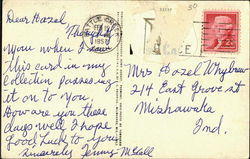 Dear Hazel
Thought of
You when I saw
this card in my
collection passing
it on to You
How are you these
days well I hope
Good luck to you
Sincerely Jenny McGill
Mrs Hazel Whybrew
214 East Grove at
Mishawaka
Ind.